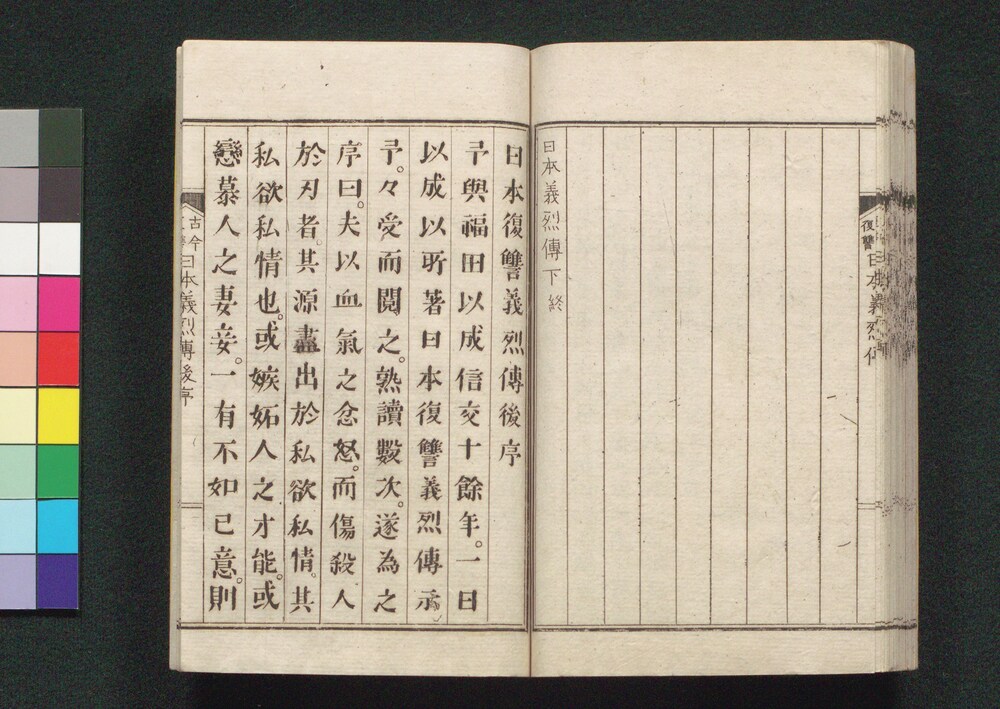 復讐日本義烈傳
日本義烈傳下終
日本復讐義烈傳後序
予與福田以成信交十餘年。一日
以成以所著日本復讐義烈傳示
予。々受而閲之。熟讀數次。遂為之
序曰。夫以血氣之忿怒。而傷殺人
於刃者。其源盡出於私欲私情。其
私欲私情也。或嫉妬人之才能。或
戀慕人之妻妾。一有不如已意。則
古今復讐日本義烈傳後序